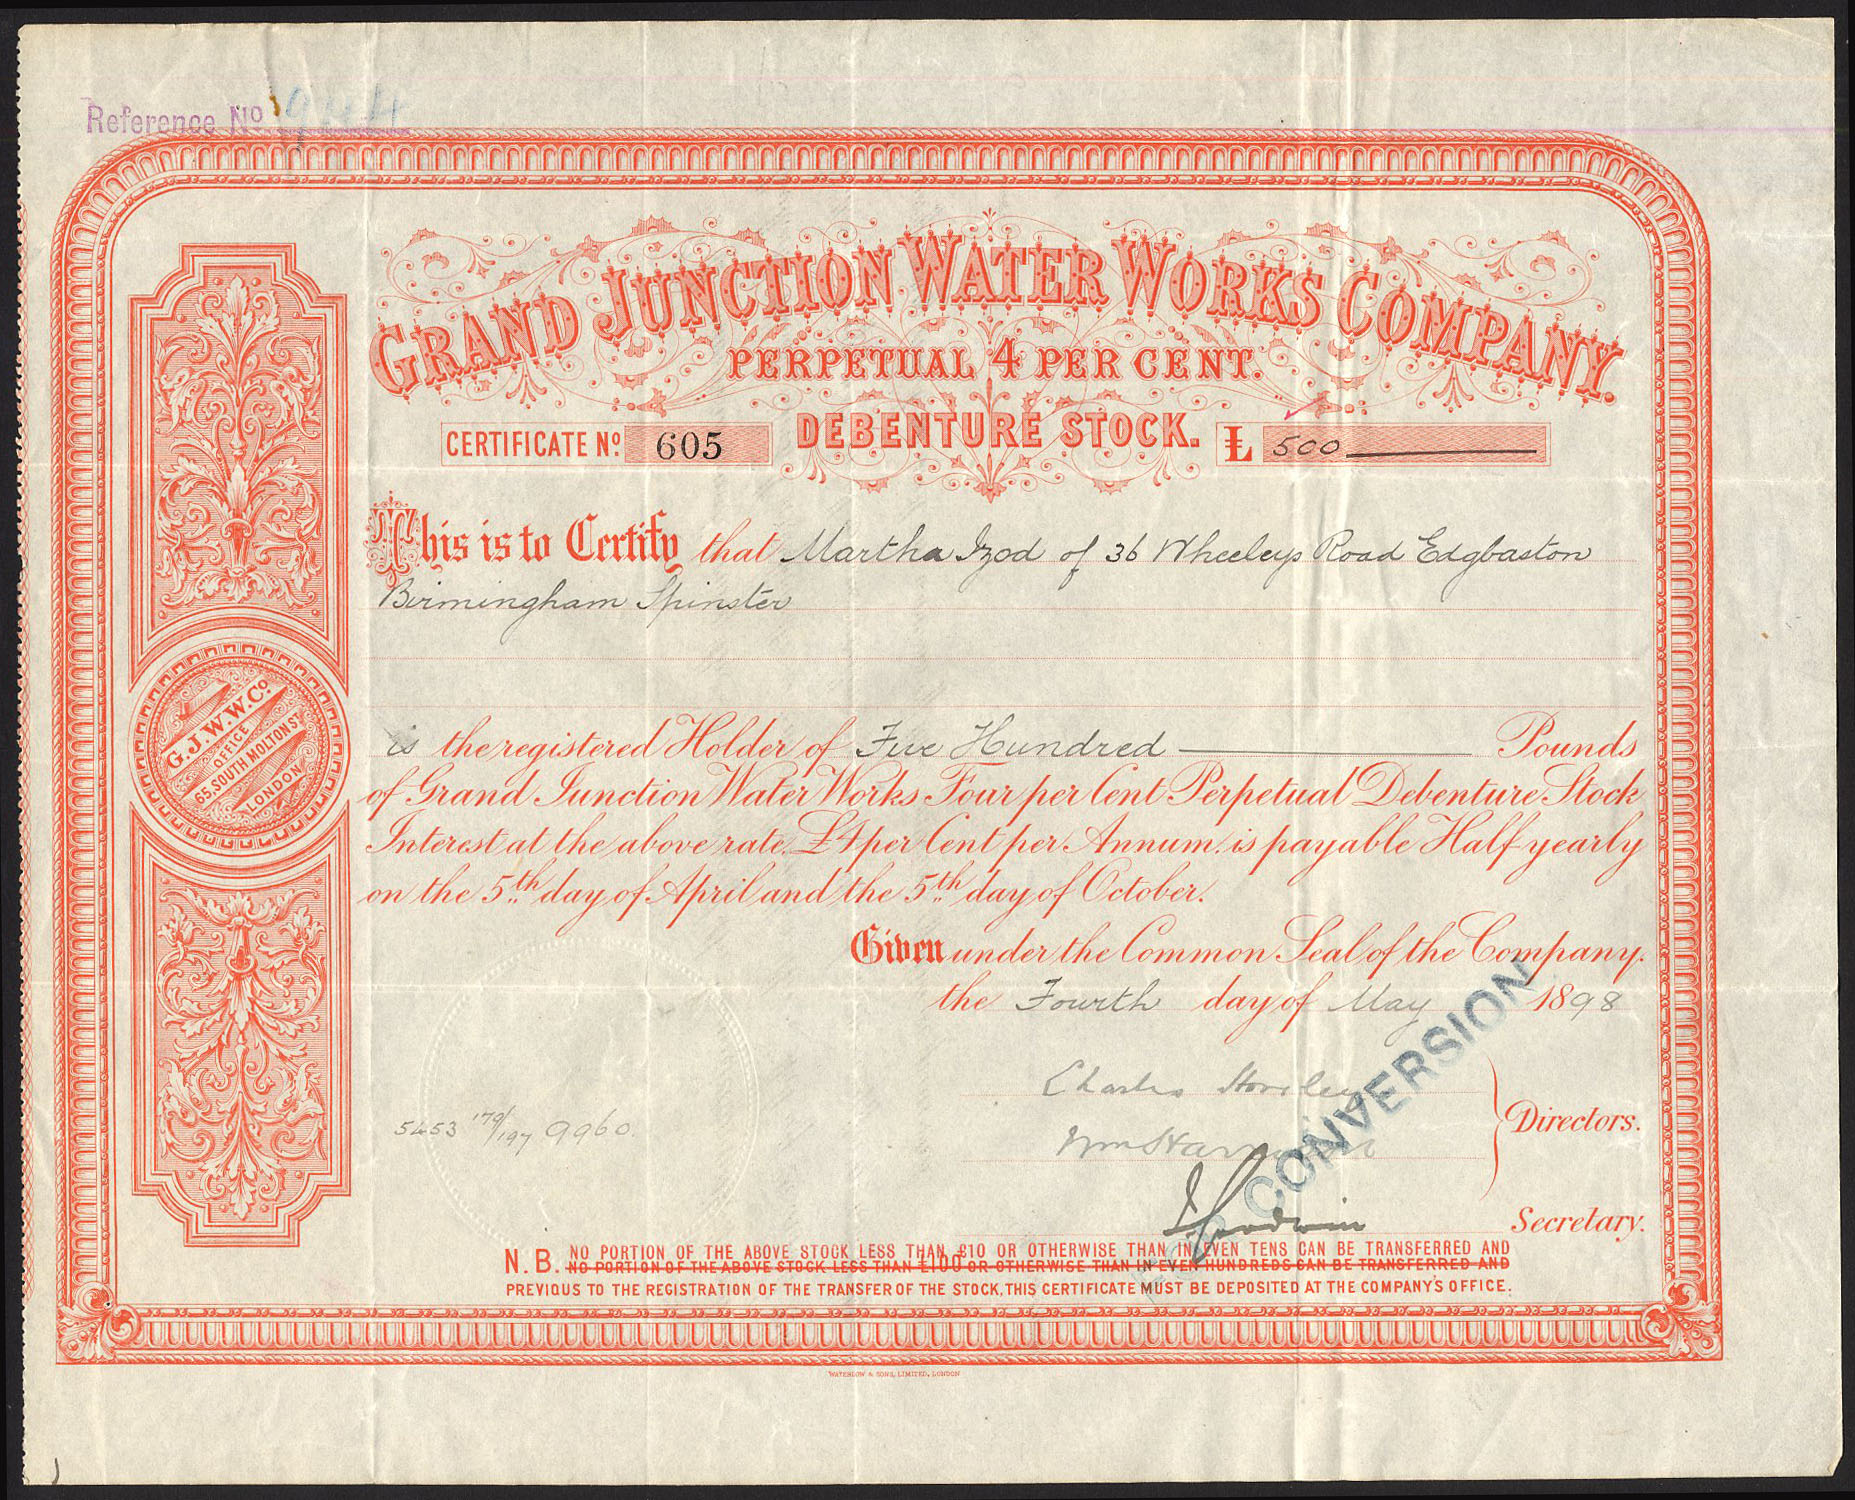 Reference No 944
GRAND JUNCTION WATER WORKS COMPANY.
PERPETUAL 4 PER CENT.
DEBENTURE STOCK.
CERTIFICATE No. 605
£ 500
This is to Certify that Martha Izod of 36 Wheeleys Road Edgbaston
Birmingham Spinster
is the registered Holder of Five Hundred Pounds
of Grand Junction Water Works Four per Cent Perpetual Debenture Stock
Interest at the above rate, £4 per Cent per Annum, is payable Half yearly
on the 5th day of April and the 5th day of October.
Given under the Common Seal of the Company.
the Fourth day of May 1898
G.J.W.W.Co.
OFFICE
65, SOUTH MOLTON ST
LONDON
Charles
Directors.
Goodwin
Secretary.
5453 179/197 9960
FOR CONVERSION
N.B. NO PORTION OF THE ABOVE STOCK LESS THAN £10 OR OTHERWISE THAN IN EVEN TENS CAN BE TRANSFERRED AND
NO PORTION OF THE ABOVE STOCK LESS THAN £100 OR OTHERWISE THAN IN EVEN HUNDREDS CAN BE TRANSFERRED AND
PREVIOUS TO THE REGISTRATION OF THE TRANSFER OF THE STOCK, THIS CERTIFICATE MUST BE DEPOSITED AT THE COMPANY'S OFFICE.
WATERLOW & SONS, LIMITED, LONDON